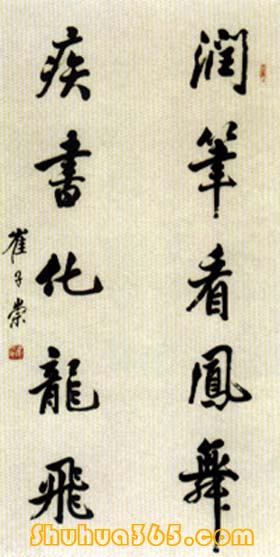 潤筆看鳳舞
疾書化龍飛
崔子崇
Shuhua365.com